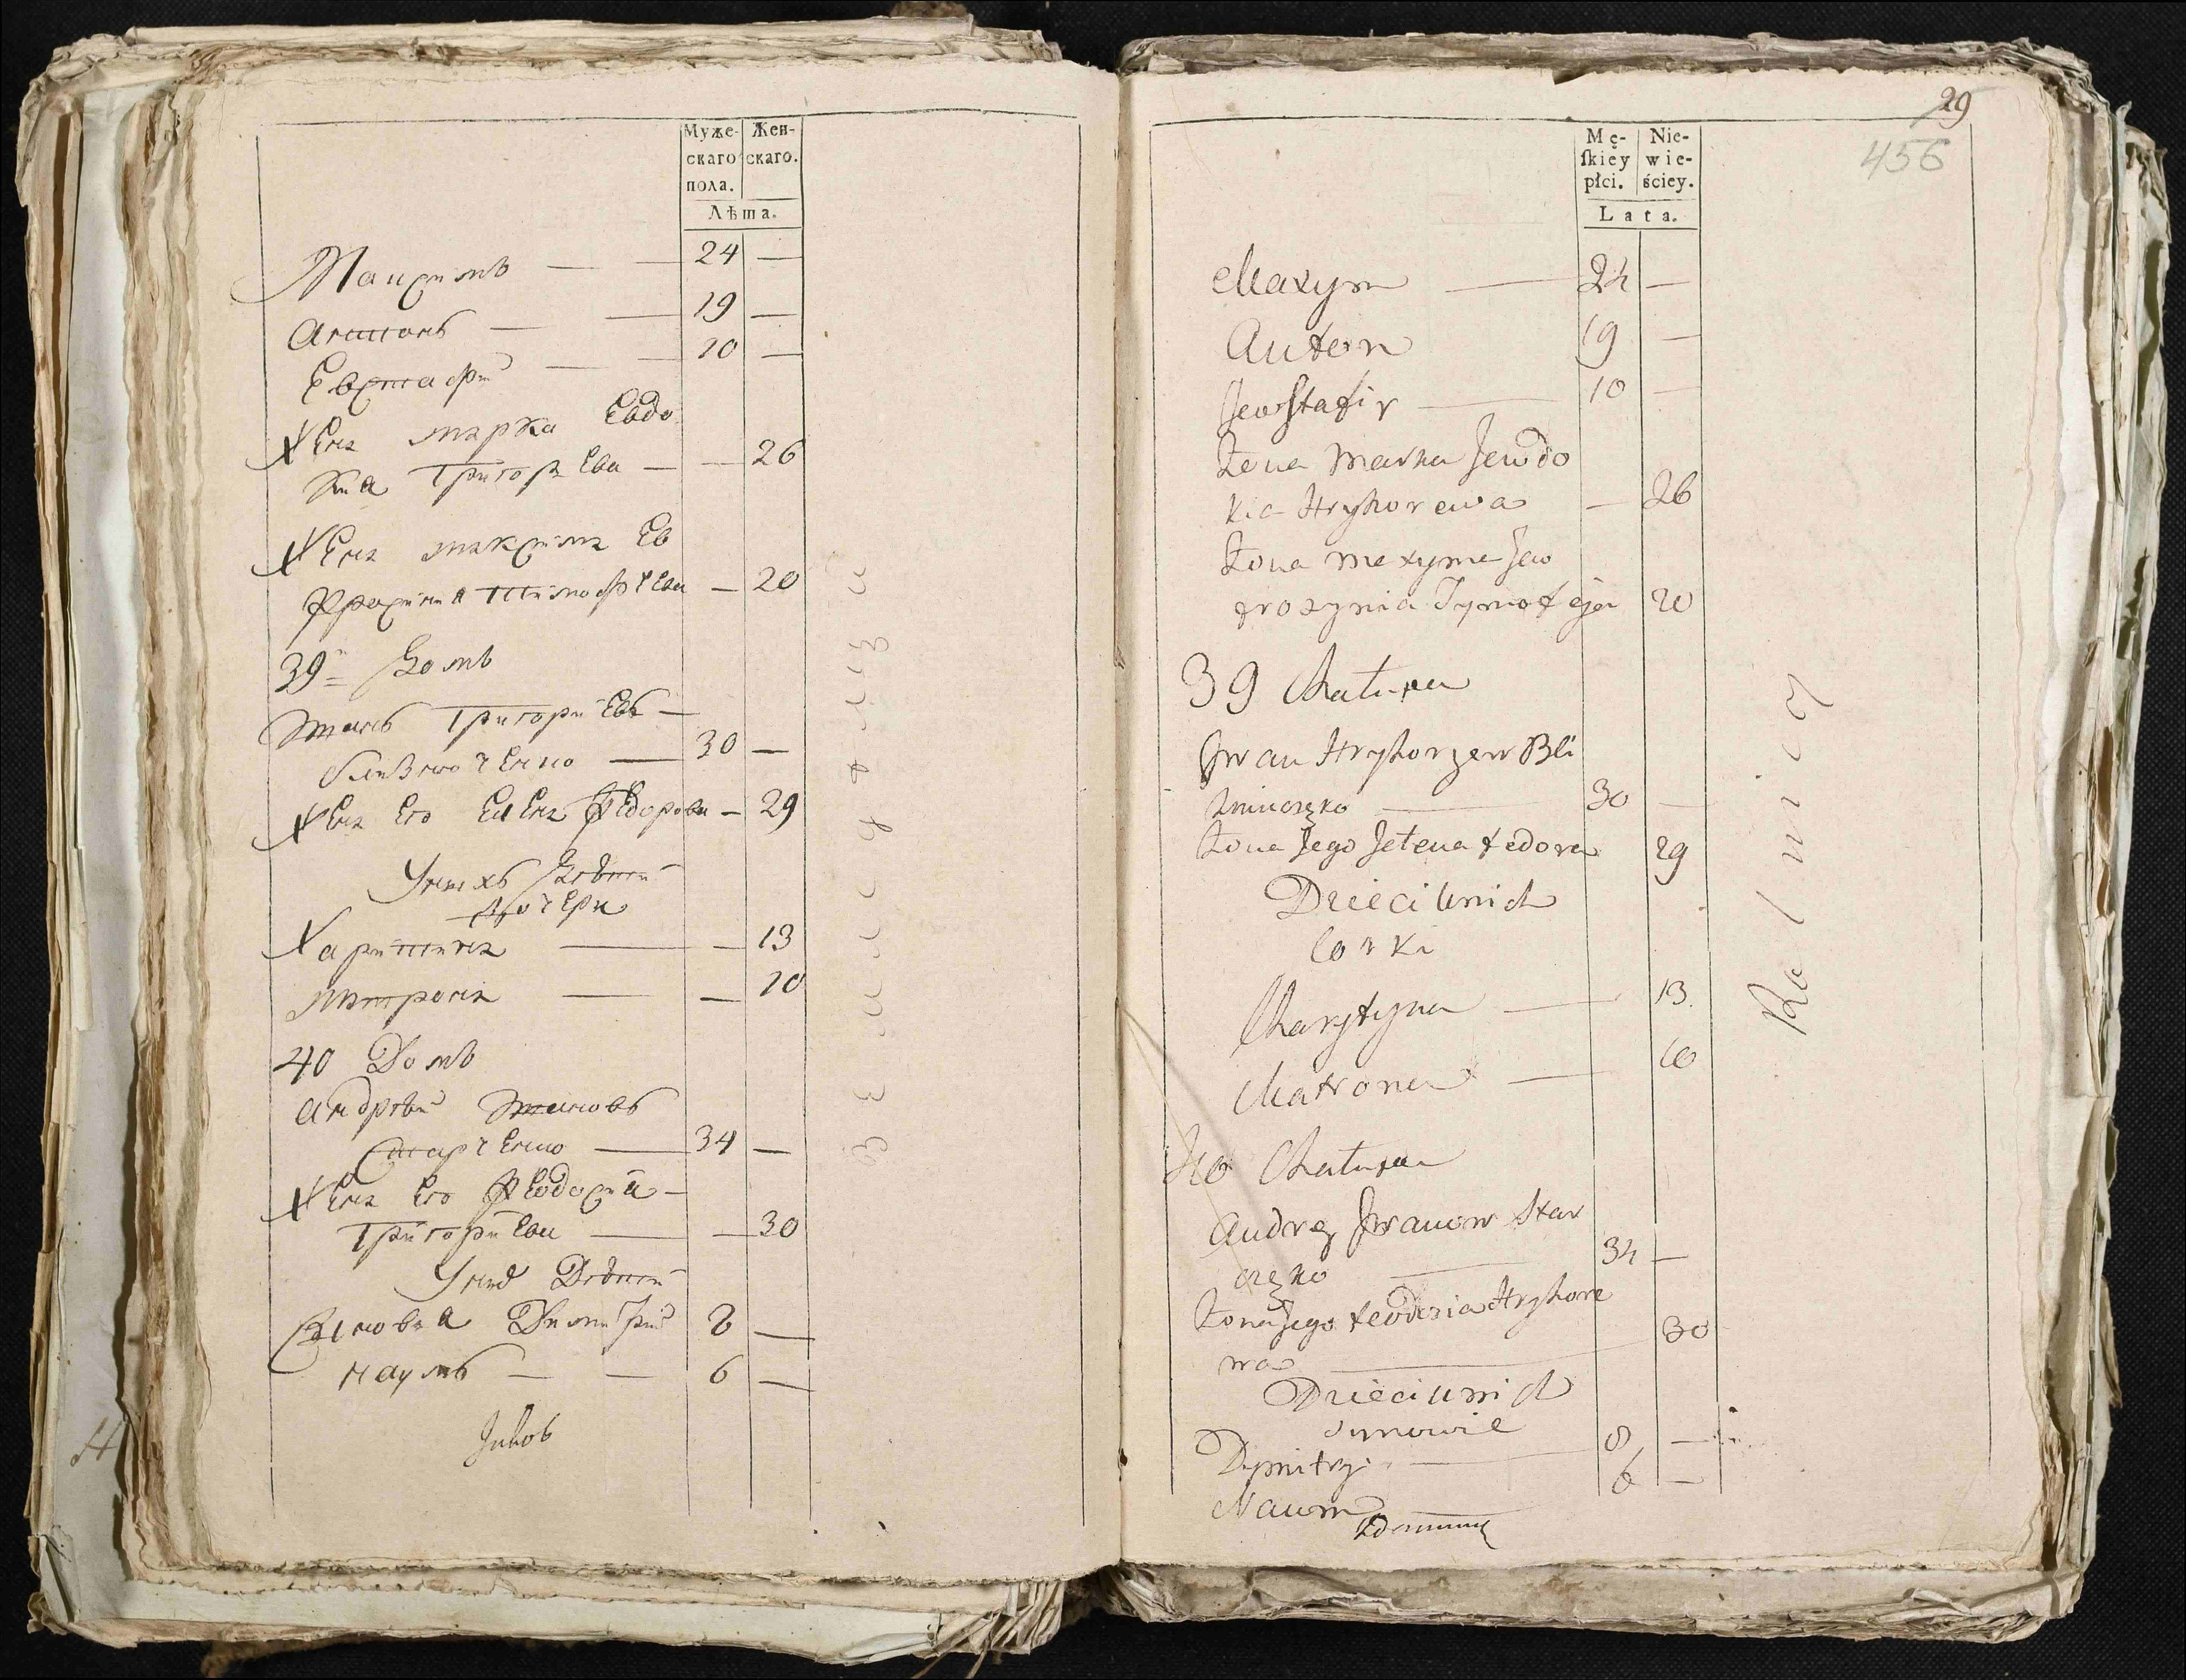 Муже-
скаго
пола.
Жен-
скаго.
Лѣта.
Максимъ — — 24 —
Антонъ — — 19 —
Евстафий — — 10 —
Жена марка Евдо
кия Григорьева — — 26
Жена максима Ев
фросиния Тимофѣева — 20
39й Домъ
Иванъ Григориевъ —
близнюченко — 30 —
Жена Его Елена Федорова — 29
У них Детей
дочери
Харитина — — 13
матрона — — 10
40 Домъ
андрѣй Ивановъ
Старченко — 34 —
Жена Его Феодосия —
Григориева — — 30
У них Детей
Сыновья Димитрий 8 —
наумъ — — 6 —
29
456
Mę-
ſkiey
płci.
Nie-
wie-
ściey.
Lata.
Maxym — 24 —
Anton 19 —
Jewstafiy — 10 —
Żona Marka Jewdo
kia Hryhorewa — 26
Żona Maxyma Jew
frozynia Tymofeja 20
39 Chatupa
Jwan Hryhorzew Bli
zniuczko — 30 —
Żona Jego Jelena Fedora 29
Dzieci Unich
Corki
Charytyna — 13.
Matrona — 10
40 Chatupa
Andrey Jwanow Star
częko — 34 —
Żona Jego Feodozia Hryhore
wa — 30
Dzieci Unich
Synowie
Dymitry — 8 —
Naum — 6 —
R a l n i c y